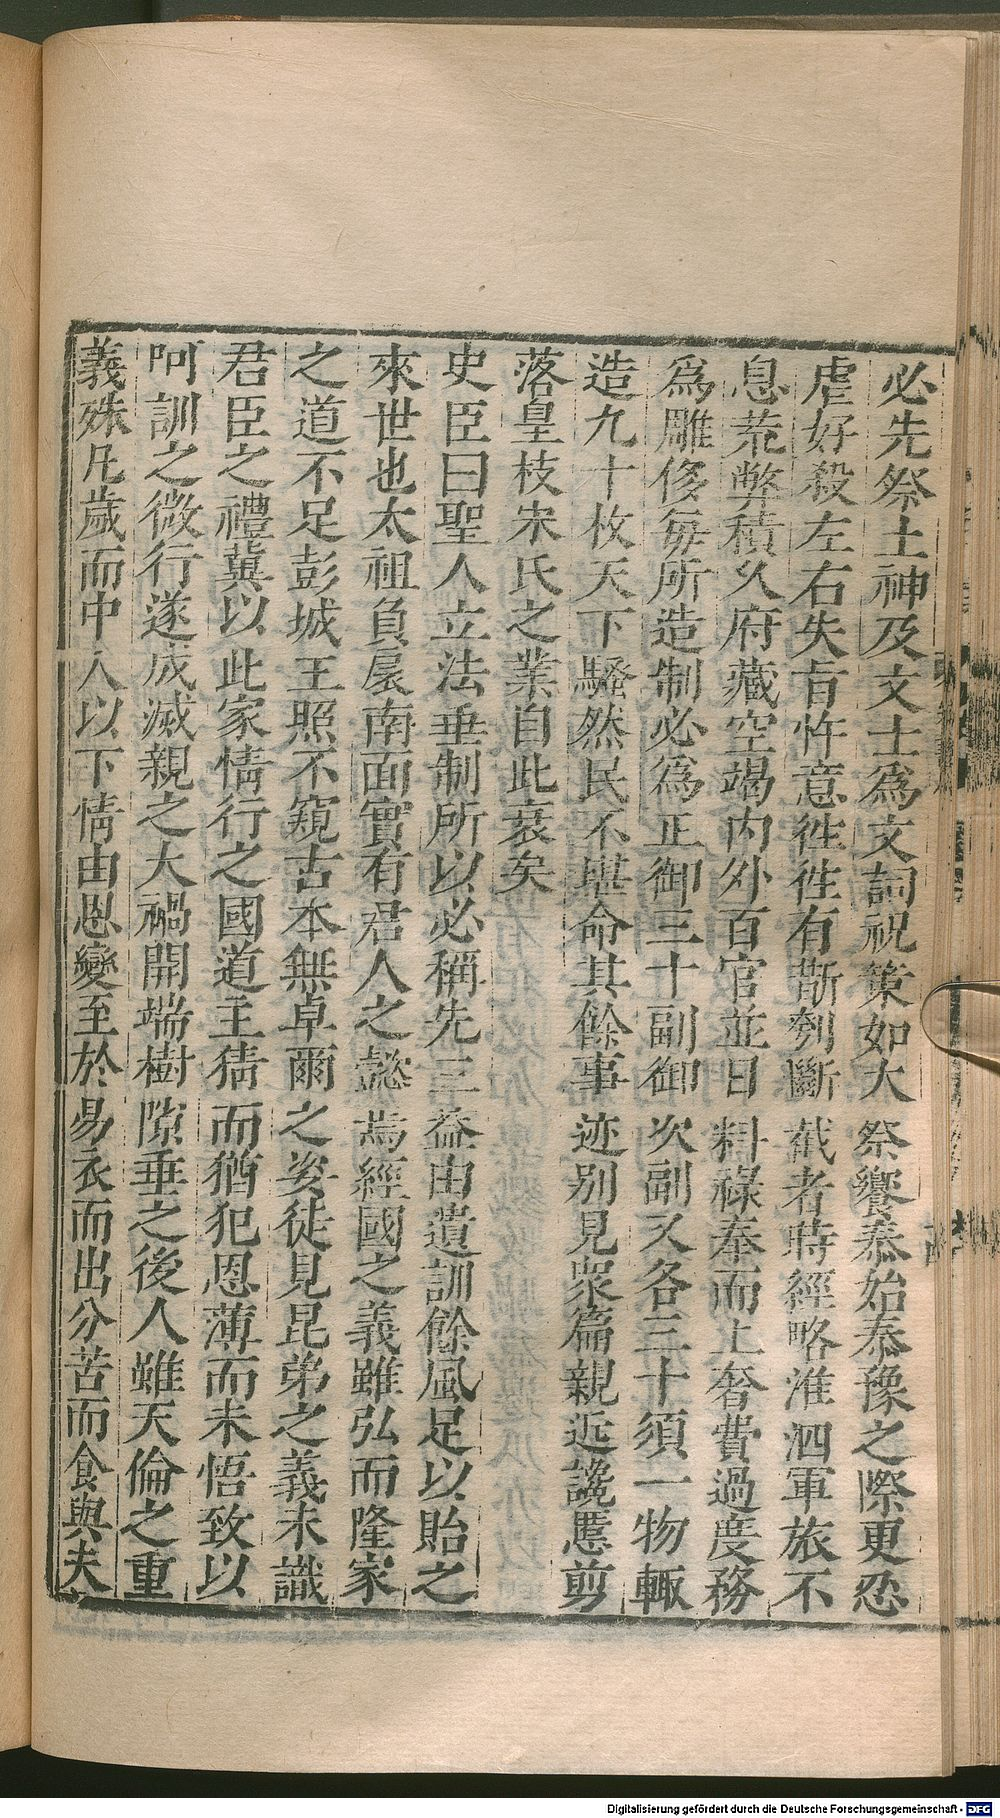 必先祭土神及文士爲文詞祝策如大祭饗泰始泰豫之際更忍
虐好殺左右失旨忤意徃徃有斮刳斷截者時經略淮泗軍旅不
息荒弊積久府藏空竭内外百官並日料祿奉而上奢費過度務
爲雕侈每所造制必爲正御三十副御次副又各三十須一物輙
造九十枚天下騷然民不堪命其餘事迹别見衆篇親近讒慝剪
落皇枝宋氏之業自此衰矣
史臣曰聖人立法垂制所以必稱先王葢由遺訓餘風足以貽之
來世也太祖負扆南面實有君人之懿焉經國之義雖弘而隆家
之道不足彭城王照不窺古本無卓爾之姿徒見昆弟之義未識
君臣之禮冀以此家情行之國道主猜而猶犯恩薄而未悟致以
呵訓之微行遂成滅親之大禍開端樹隙垂之後人雖天倫之重
義殊凡歲而中人以下情由恩變至於易衣而出分苦而食與夫
Digitalisierung gefördert durch die Deutsche Forschungsgemeinschaft - DFG